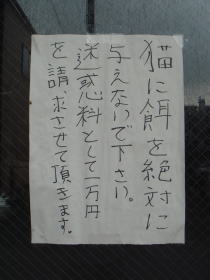 猫に餌を絶対に
与えないで下さい。
迷惑料として一万円
を請求させて頂きます。